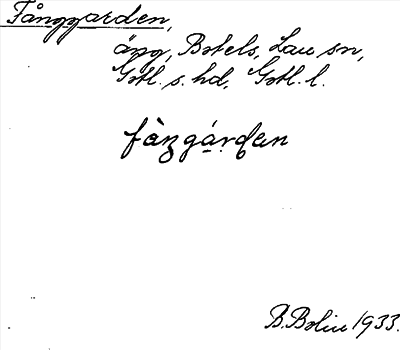 Fånggarden,
äng, Botels, Lau sn,
Gotl. s. hd, Gotl. l.
fàŋgá̱rđen
B. Bolin 1933.